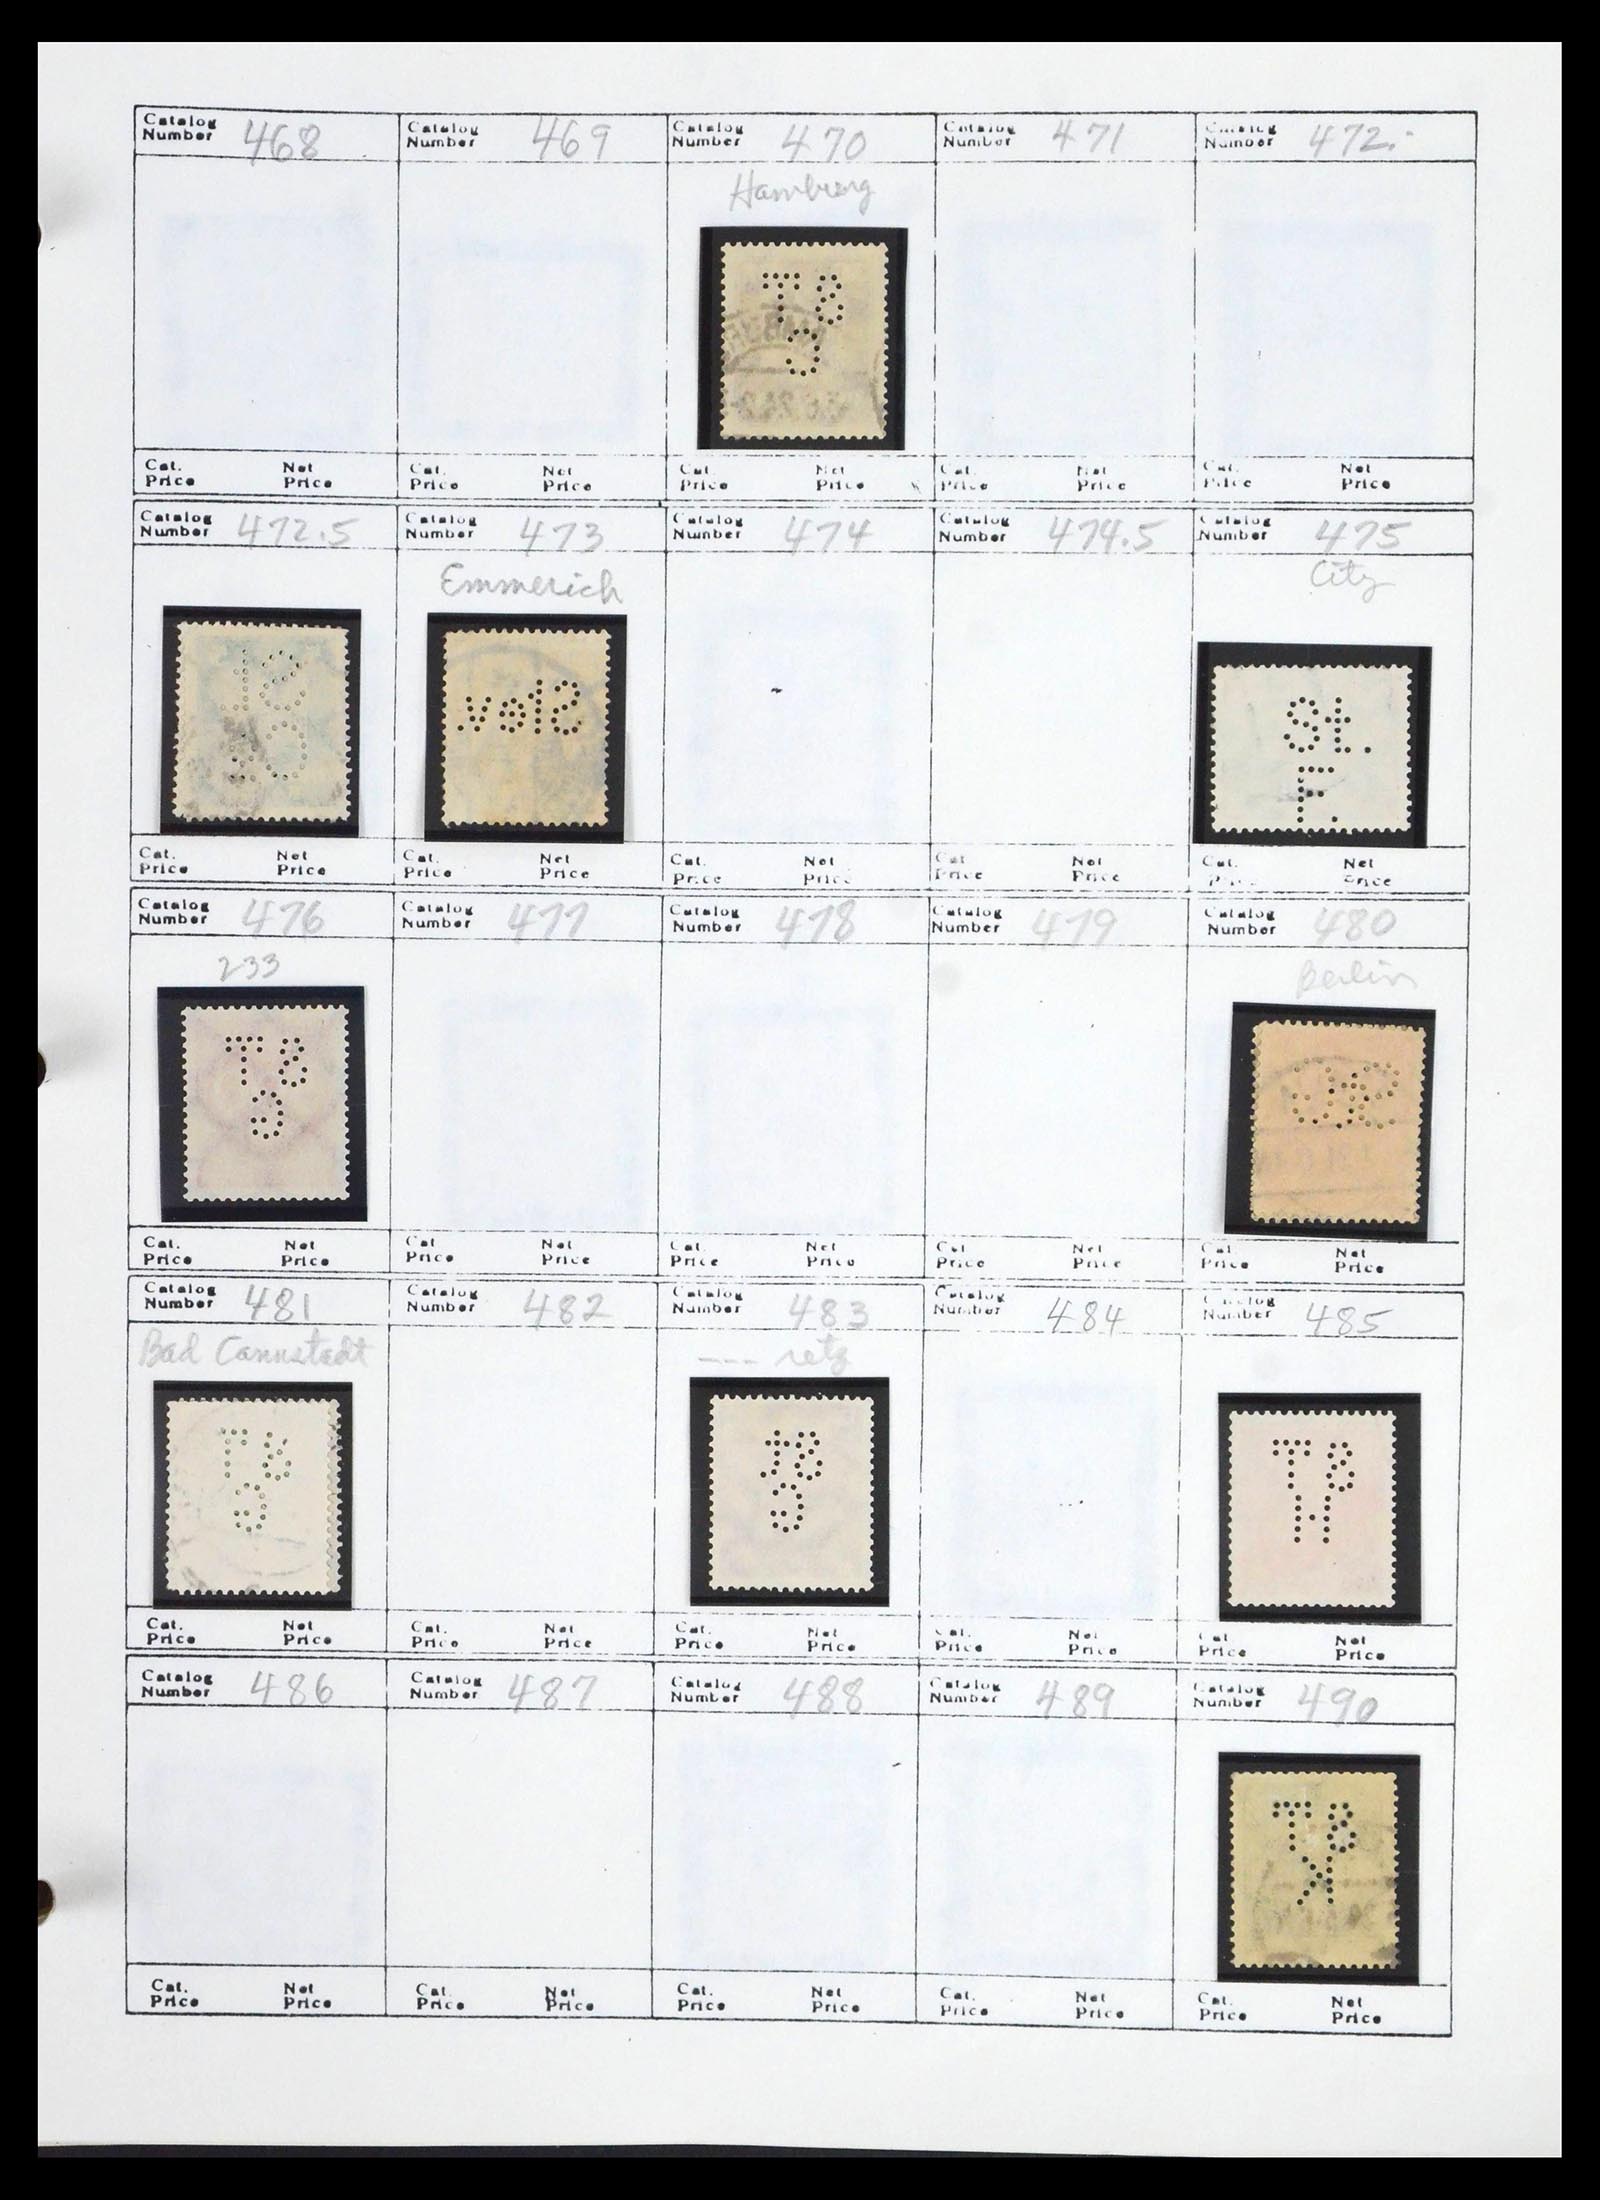 Catalog Number 468 Catalog Number 469 Catalog Number 470 Catalog Number 471 Catalog Number 472.-
Hamburg
Cat. Price Net Price Cat. Price Net Price Cat. Price Net Price Cat. Price Net Price Cat. Price Net Price
Catalog Number 472.5 Catalog Number 473 Catalog Number 474 Catalog Number 474.5 Catalog Number 475
Emmerich City
St.
F.
Cat. Price Net Price Cat. Price Net Price Cat. Price Net Price Cat. Price Net Price Cat. Price Net Price
Catalog Number 476 Catalog Number 477 Catalog Number 478 Catalog Number 479 Catalog Number 480
233 Berlin
Cat. Price Net Price Cat. Price Net Price Cat. Price Net Price Cat. Price Net Price Cat. Price Net Price
Catalog Number 481 Catalog Number 482 Catalog Number 483 Catalog Number 484 Catalog Number 485
Bad Cannstadt --- retz
Cat. Price Net Price Cat. Price Net Price Cat. Price Net Price Cat. Price Net Price Cat. Price Net Price
Catalog Number 486 Catalog Number 487 Catalog Number 488 Catalog Number 489 Catalog Number 490
Cat. Price Net Price Cat. Price Net Price Cat. Price Net Price Cat. Price Net Price Cat. Price Net Price